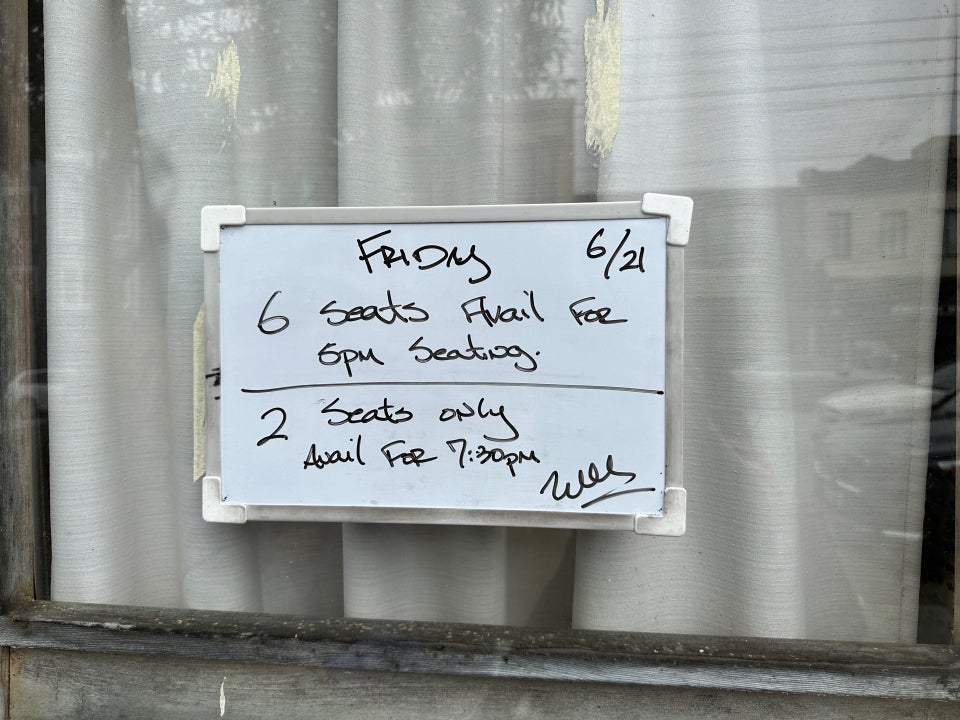 FRIDAY 6/21
6 Seats Avail FOR
5pm Seating.
2 Seats only
Avail FOR 7:30pm